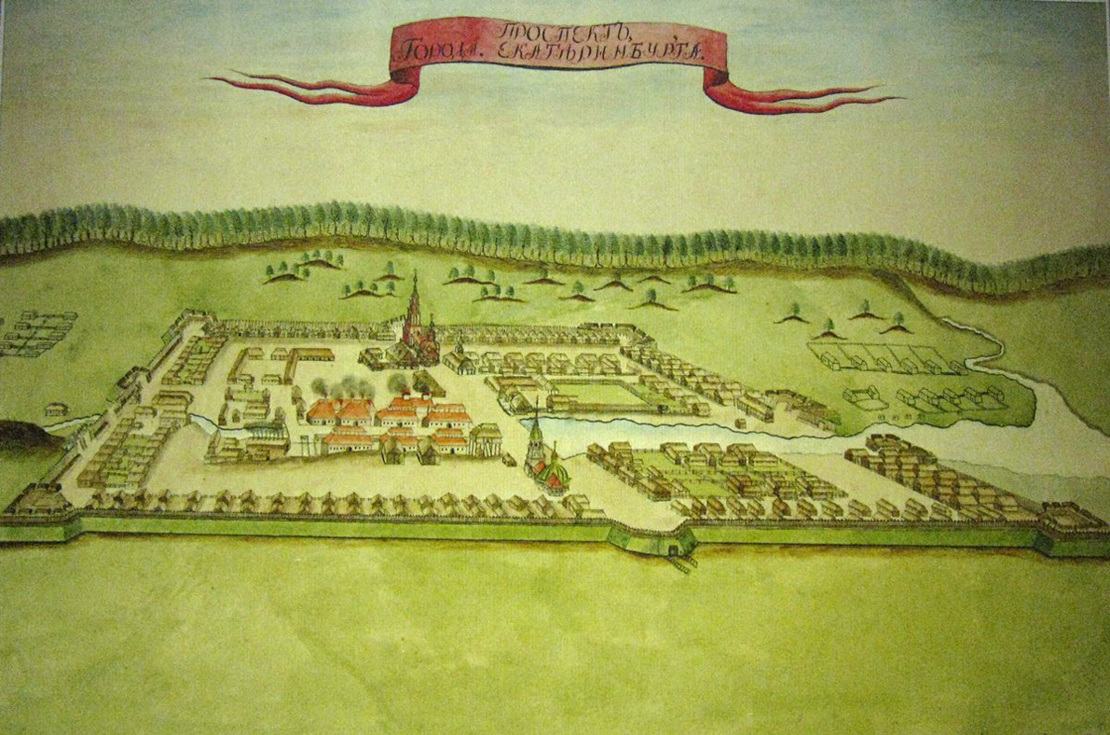 ПРОСПЕКТЪ,
ГОРОДА. ЕКАТѢРИНБУРГА.